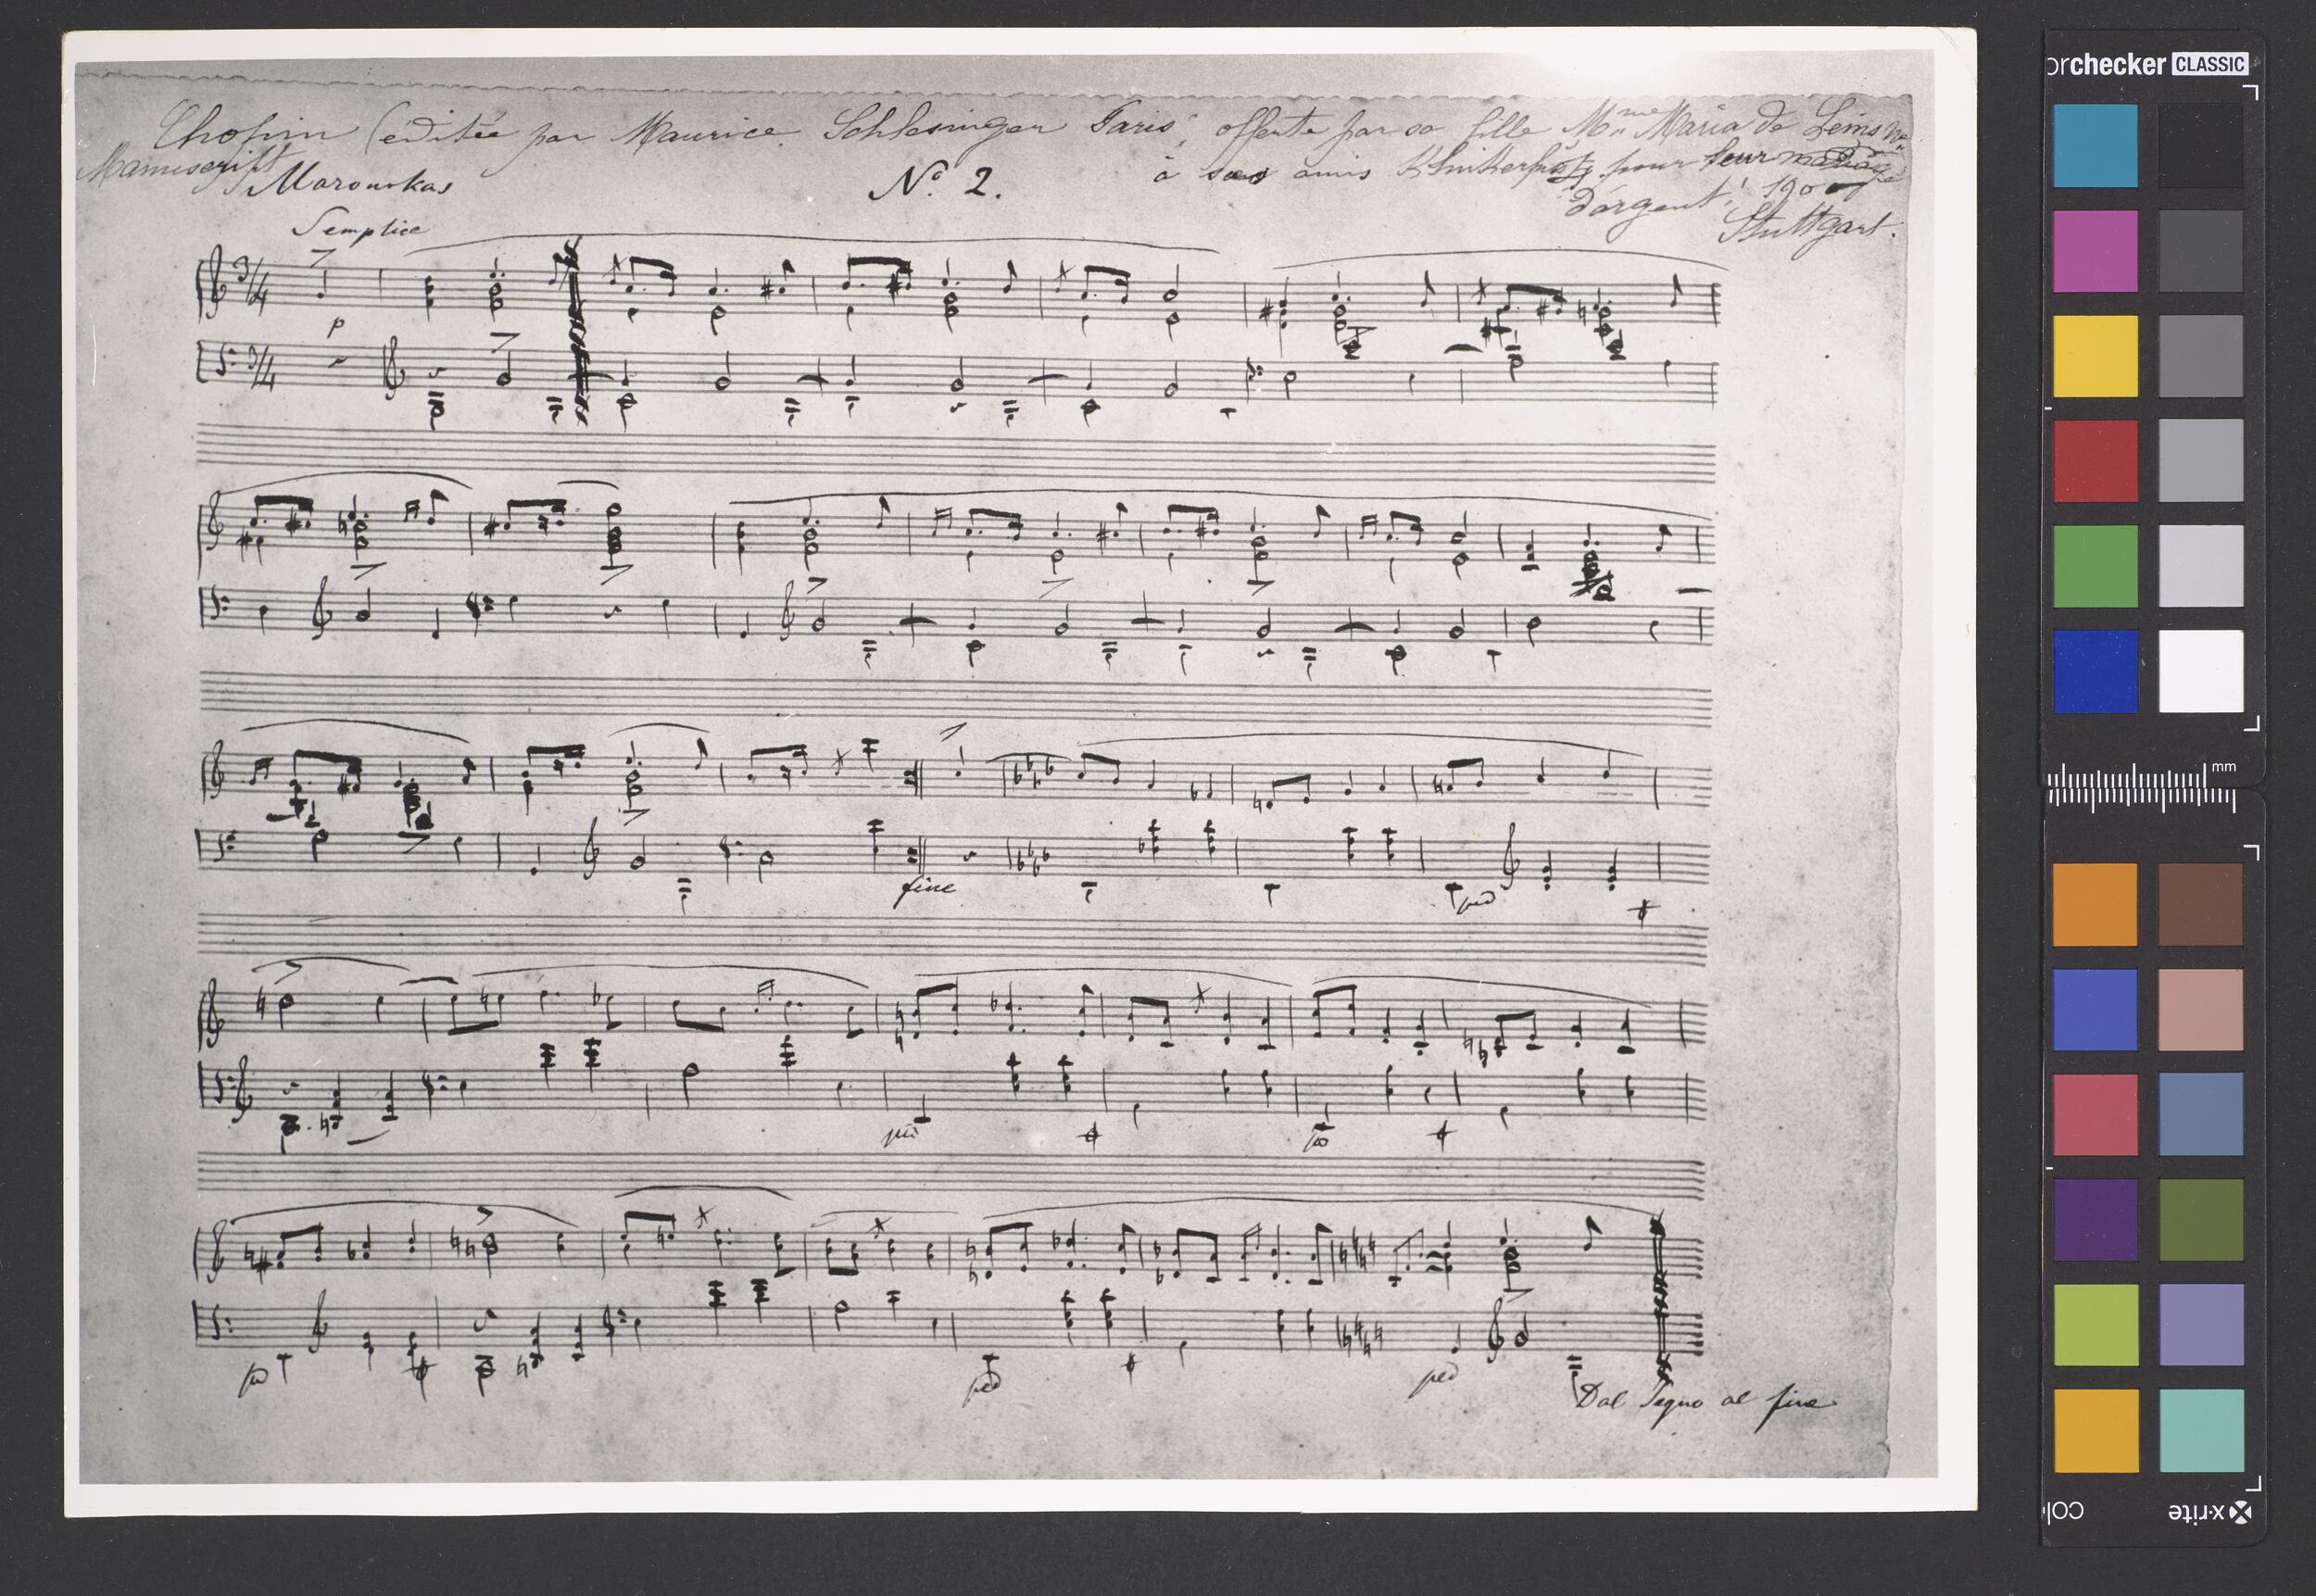 Chopin (editée par Maurice Schlesinger Paris, offerte par sa fille Mme Maria de
Manuscript
à ses amis pour leur
Mazourkas
No. 2.
d'argent! 1900
Stuttgart.
Semplice
3/4
p
3/4
fine
ped
ped
ped
ped
ped
ped
Dal Segno al fine
orchecker CLASSIC
mm
x-rite
col